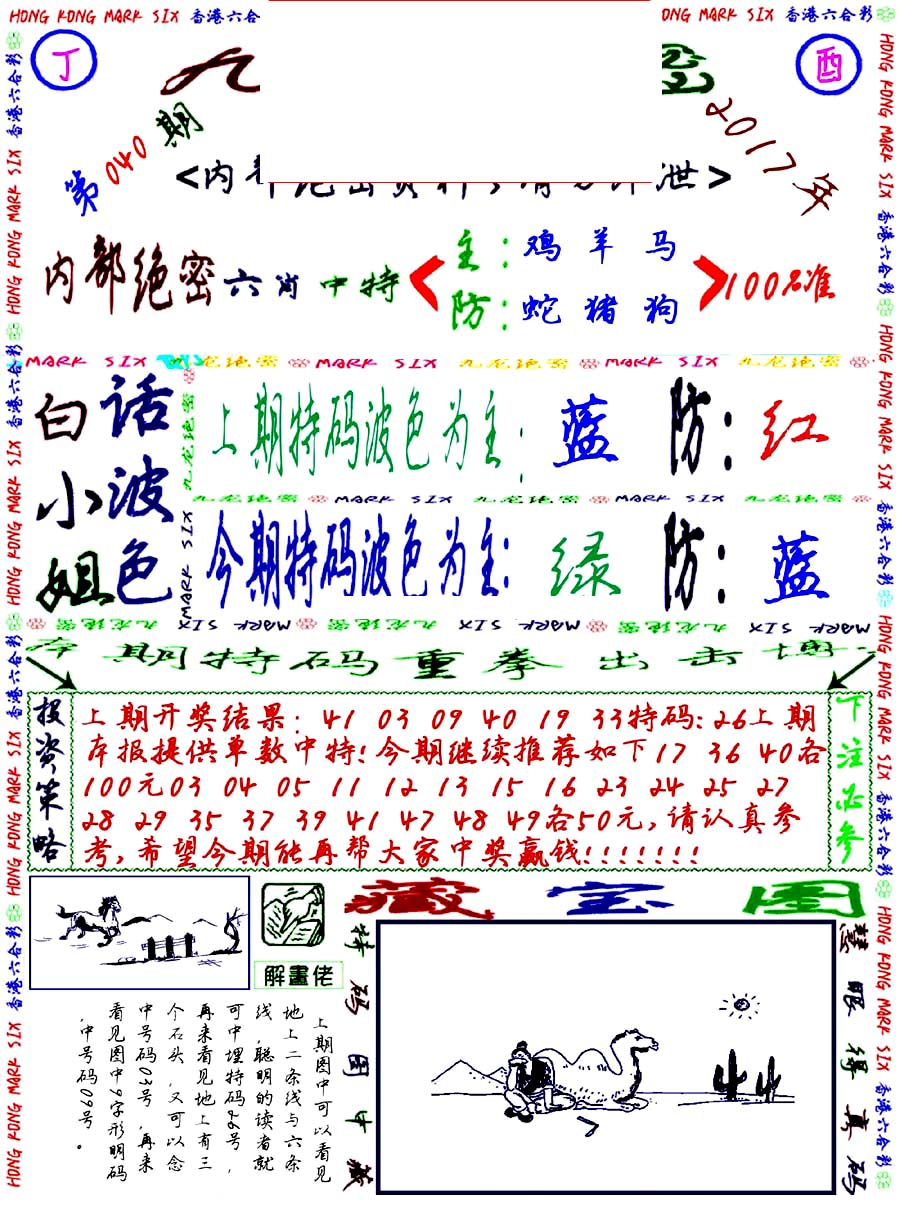 HONG KONG MARK SIX 香港六合彩
丁
九
酉
第040期
2017年
内部绝密六肖中特
主:鸡羊马
防:蛇猪狗
100%准
MARK SIX 九龙绝密 MARK SIX 九龙绝密 MARK SIX 九龙绝密
白话
小波
姐色
上期特码波色为主:蓝 防:红
九龙绝密 MARK SIX 九龙绝密 MARK SIX 九龙绝密
今期特码波色为主:绿 防:蓝
九龙绝密 MARK SIX 九龙绝密 MARK SIX 九龙绝密 MARK SIX
本期特码重拳出击
投资策略
上期开奖结果:41 03 09 40 19 33特码:26上期
本报提供单数中特!今期继续推荐如下17 36 40各
100元03 04 05 11 12 13 15 16 23 24 25 27
28 29 35 37 39 41 47 48 49各50元,请认真参
考,希望今期能再帮大家中奖赢钱!!!!!!!
下注必参
解畫佬
藏宝图
上期图中可以看见
地上二条线与六条
线,聪明的读者就
可中埋特码26号,
再来看见地上有三
个石头,又可以念
中号码03号,再来
看见图中9字形明码
,中号码09号。
特码图中藏
慧眼得真码